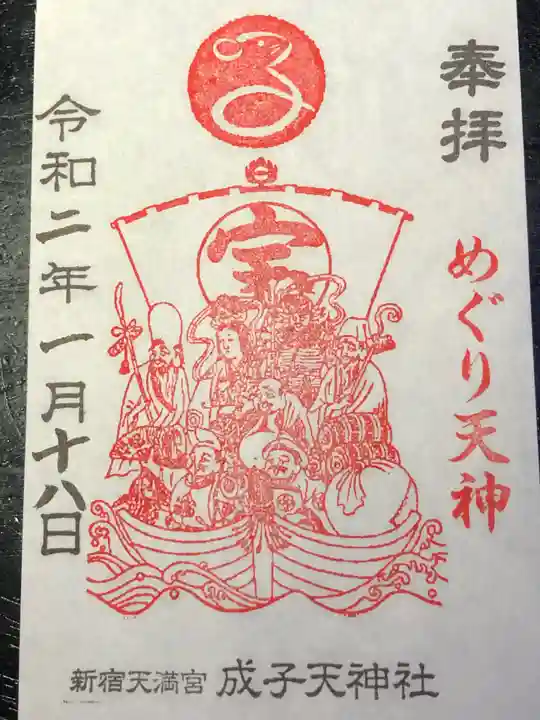 奉拝
めぐり天神
子
宝
令和二年一月十八日
新宿天満宮 成子天神社